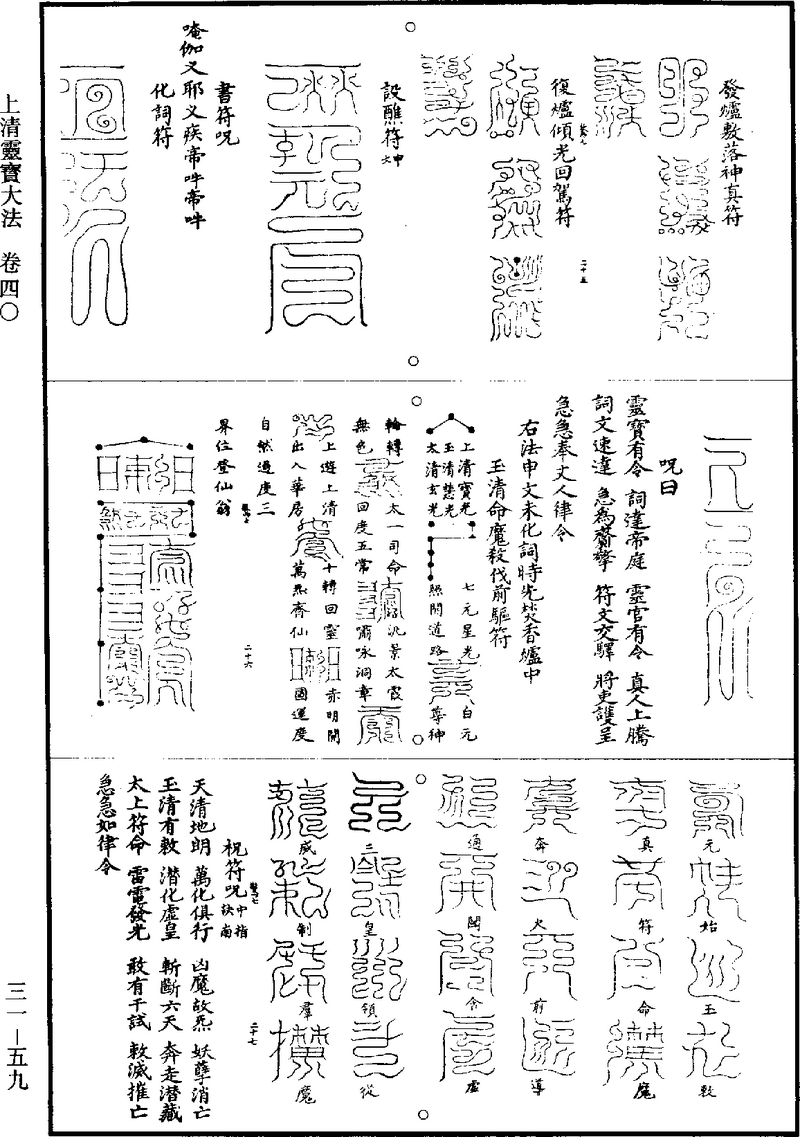 上清靈寶大法 卷四〇
三一—五九
發爐敷落神真符
復爐傾光回駕符
二十五
設醮符
書符呪
唵伽义耶义疾帝吽帝吽
化詞符
呪曰
靈寶有令 詞達帝庭 靈官有令 真人上騰
詞文速達 急為齎擎 符文交驛 將吏護呈
急急奉丈人律令
右法申文未化詞時先焚香爐中
玉清命魔殺伐前驅符
上清寶光
玉清慧光
太清玄光
七元星光
照開道路
八白元
尊神
輪轉
太一司命
汎景太霞
無色
回度五常
嘯咏洞章
上遊上清
十轉回靈
赤明開
出入華房
萬炁齊仙
國運度
自然過度三
界位登仙翁
二十六
元 始 玉 敕
真 符 命 魔
奔 火 前 導
通 開 合 虛
三 皇 領 從
威 制 羣 魔
祝符呪
中指
訣南
天清地朗 萬化俱行 凶魔故炁 妖孽消亡
玉清有敕 潛化虛皇 斬斷六天 奔走潛藏
太上符命 雷電發光 敢有干試 敕滅摧亡
急急如律令
二十七